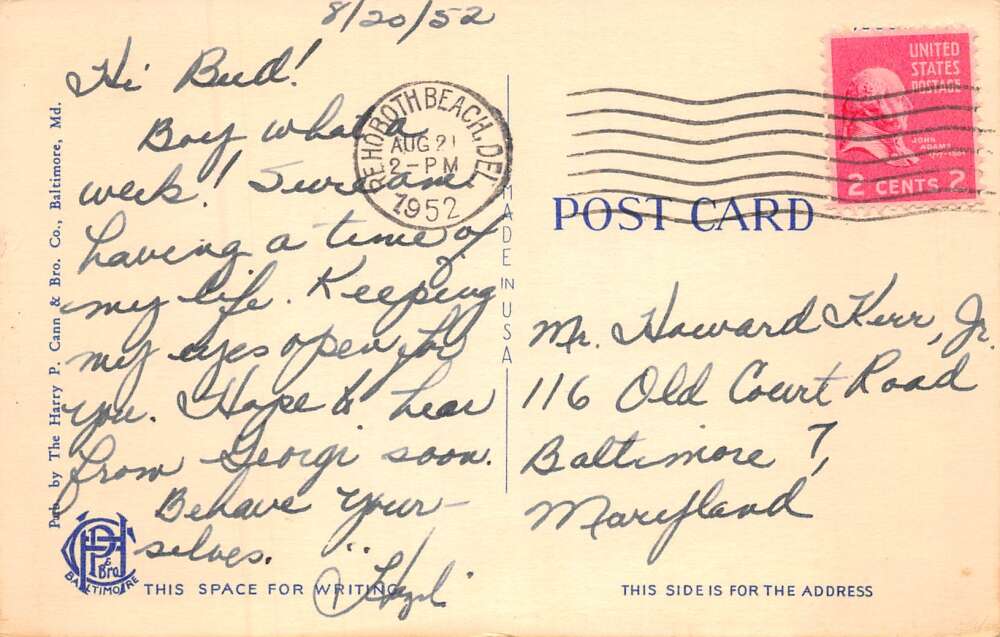 8/20/52
Hi Bud!
Boy what a
week! Sure am
having a time of
my life. Keeping
my eyes open for
you. Hope to hear
from Georgi soon.
Behave your-
selves.
Pub. by The Harry P. Cann & Bro. Co., Baltimore, Md.
BALTIMORE
THIS SPACE FOR WRITING
REHOBOTH BEACH, DEL.
AUG 21
2-PM
1952
MADE IN USA
UNITED
STATES
POSTAGE
JOHN
ADAMS
2 CENTS 2
POST CARD
Mr. Howard Kerr, Jr.
116 Old Court Road
Baltimore 7,
Maryland
THIS SIDE IS FOR THE ADDRESS